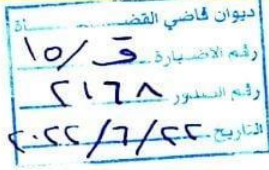 ديوان قاضي القضاة
رقم الاضبارة ق/١٥
رقم الصدور ٢١٦٨
التاريخ ٢٠٢٢/٦/٢٢